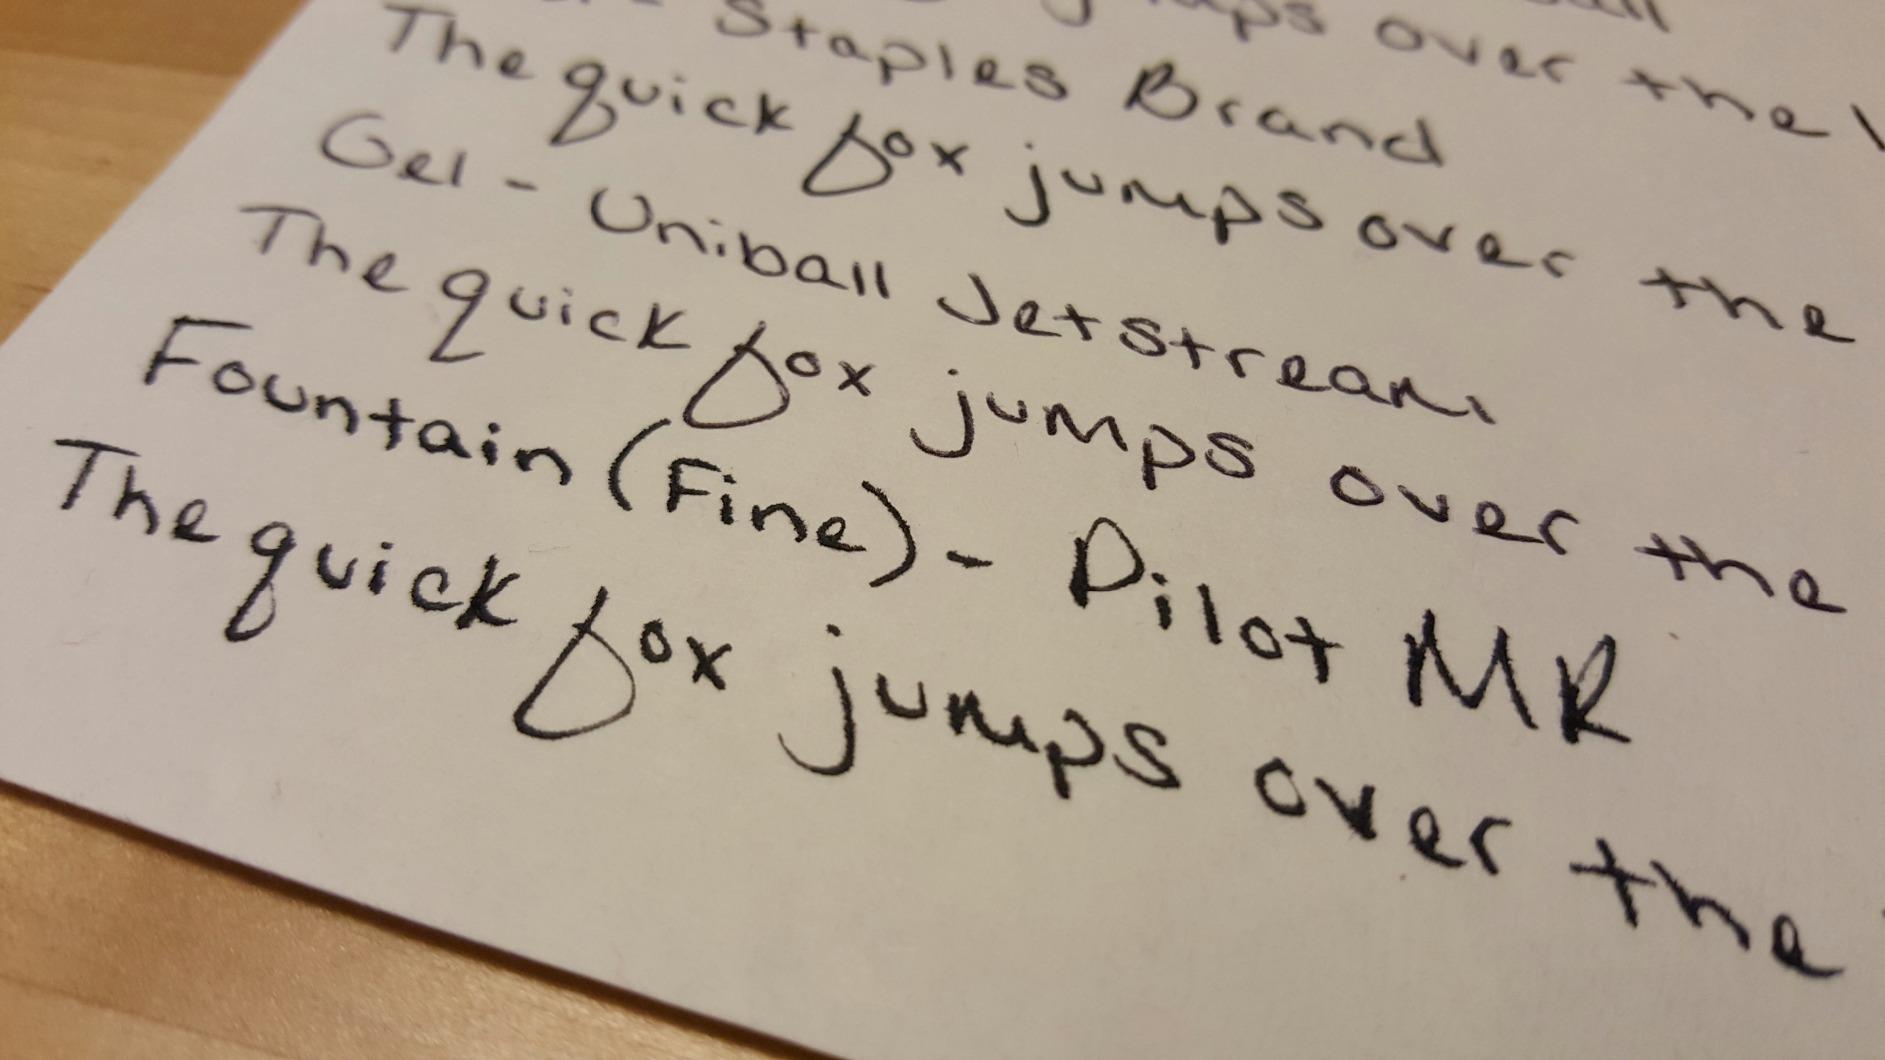 jumps over the
Staples Brand
The quick fox jumps over the
Gel - Uniball Jetstream
The quick fox jumps over the
Fountain (Fine) - Pilot MR
The quick fox jumps over the